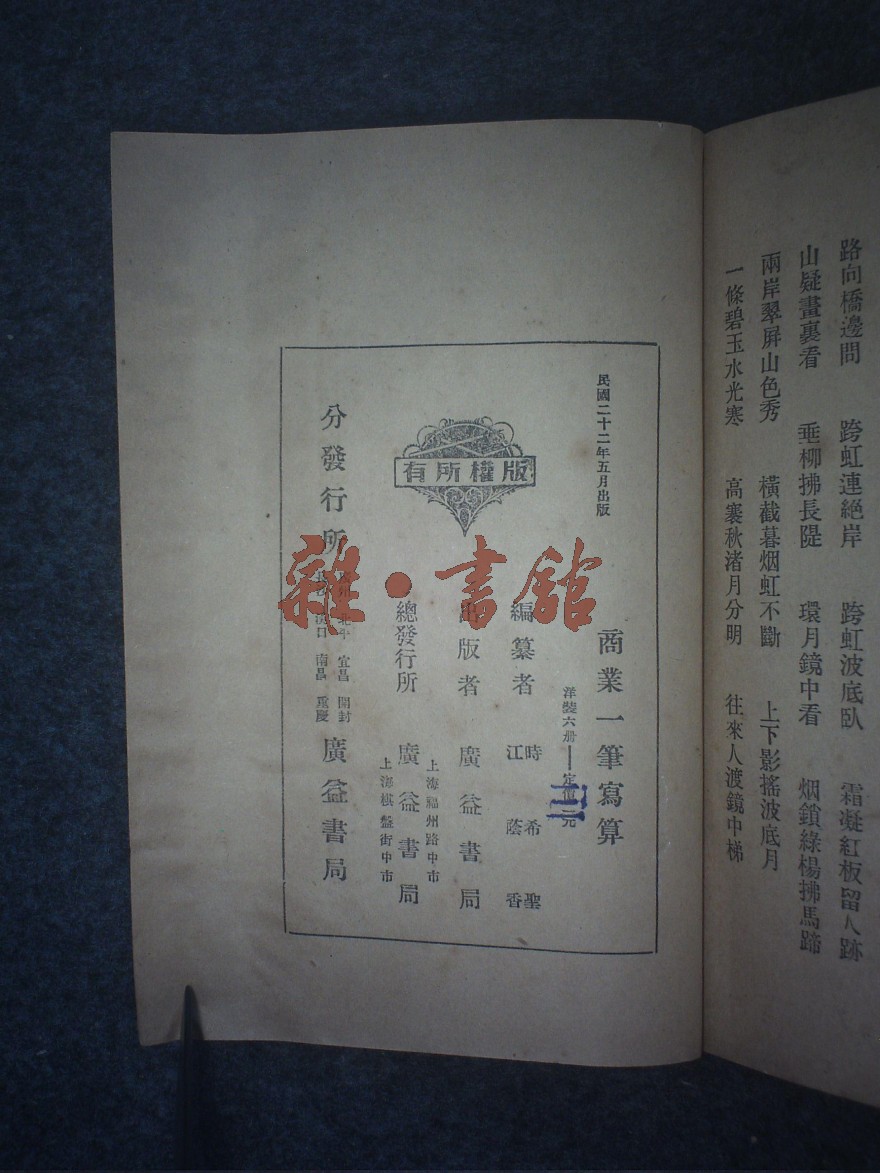 路向橋邊問 跨虹連絕岸 跨虹波底臥 霜凝紅板留人跡
山疑畫裏看 垂柳拂長隄 環月鏡中看 烟鎖綠楊拂馬蹄
兩岸翠屏山色秀 橫截暮烟虹不斷 上下影搖波底月
一條碧玉水光寒 高褰秋渚月分明 往來人渡鏡中梯
民國二十二年五月出版
商業一筆寫算
洋裝六册——定價三元
編纂者 時希聖
江蔭香
版權所有
出版者 廣益書局
上海福州路中市
總發行所 廣益書局
上海棋盤街中市
分發行所
北平 宜昌 開封
漢口 南昌 重慶
廣益書局
雜·書館